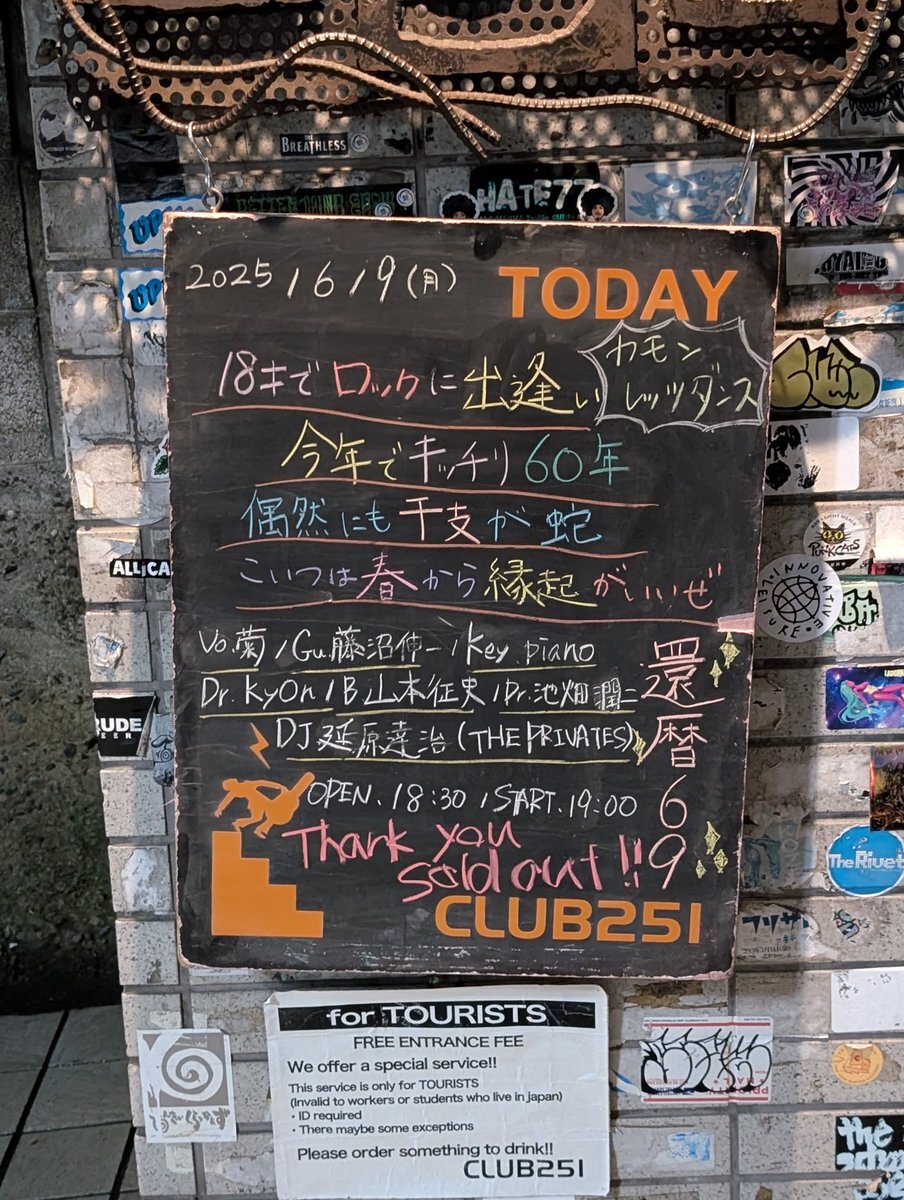 THE BREATHLESS
HATE77
UP
UP
2025/6/9(月)
TODAY
18才でロックに出逢い
カモン
レッツダンス
今年でキッチリ60年
偶然にも干支が蛇
こいつは春から縁起がいいぜ
Vo.菊/Gu.藤沼伸一/Key piano
Dr.kyOn/B山本征史/Dr.池畑潤二
DJ延原達治(THE PRIVATES)
還暦69
OPEN.18:30/START.19:00
Thank you
sold out!!
CLUB251
PUNKCATS
INNOVATIVE
LEISURE
ALL
CA
RUDE
The Rivet
for TOURISTS
FREE ENTRANCE FEE
We offer a special service!!
This service is only for TOURISTS
(Invalid to workers or students who live in japan)
・ID required
・There maybe some exceptions
Please order something to drink!!
CLUB251
the